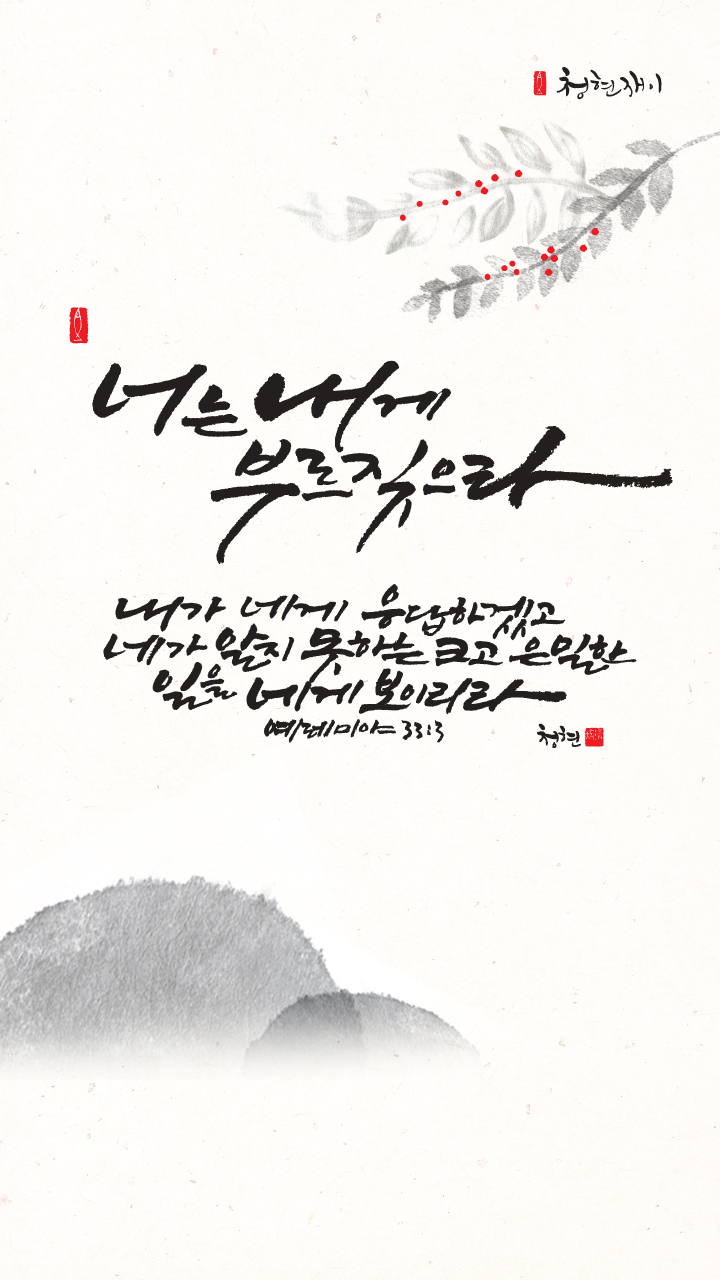 청현재이
너는 내게
부르짖으라
내가 네게 응답하겠고
네가 알지 못하는 크고 은밀한
일을 네게 보이리라
예레미야 33:3
청현